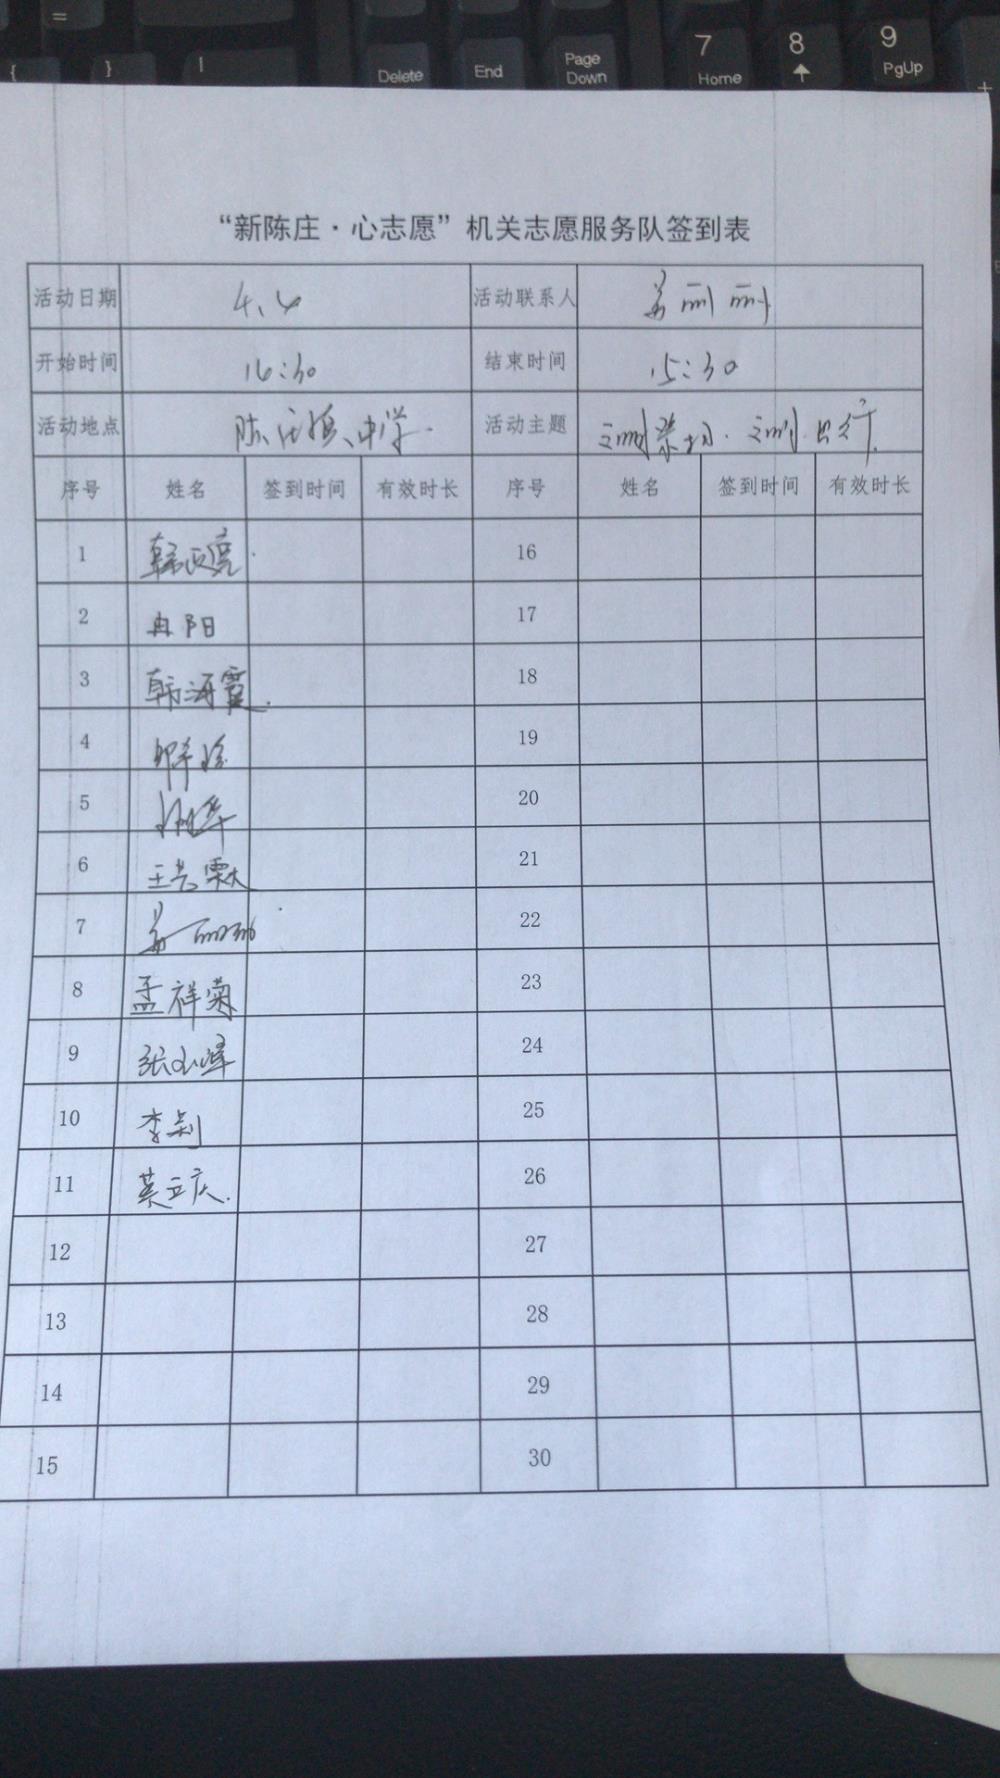 =
{
}
|
Delete
End
Page
Down
7
Home
8
9
PgUp
+
“新陈庄·心志愿”机关志愿服务队签到表
活动日期 4.4 活动联系人 姜丽丽
开始时间 14:30 结束时间 15:30
活动地点 陈庄镇中学. 活动主题
序号 姓名 签到时间 有效时长 序号 姓名 签到时间 有效时长
1 韩政亮 16
2 冉阳 17
3 韩海霞 18
4 19
5 20
6 21
7 姜丽丽 22
8 孟祥菊 23
9 张小峰 24
10 李剑 25
11 蔡立庆 26
12 27
13 28
14 29
15 30